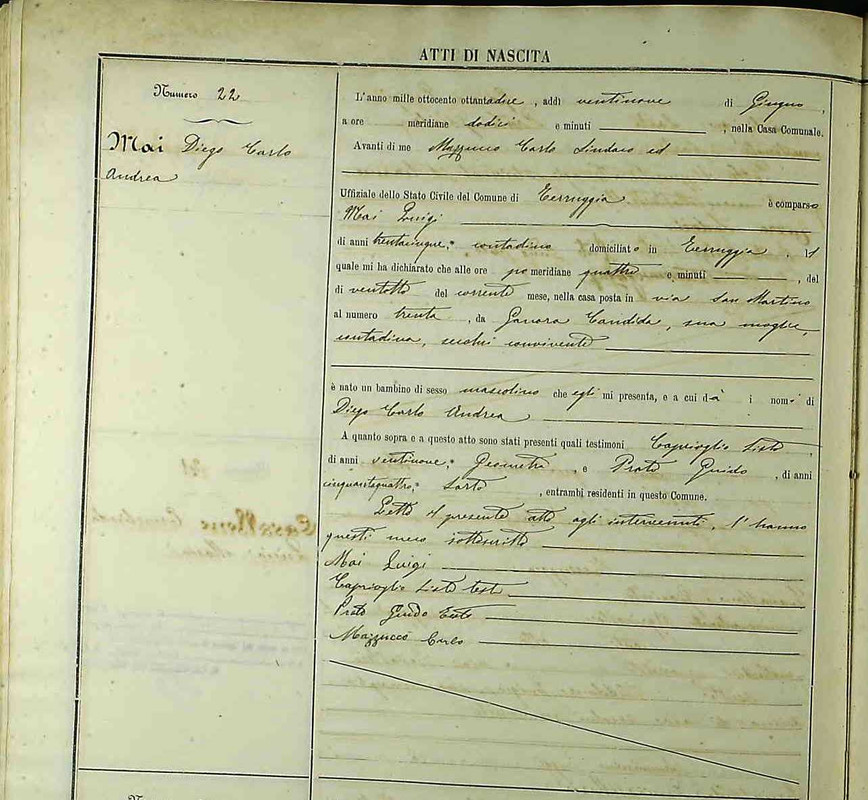 ATTI DI NASCITA
Numero 22
Mai Diego Carlo
Andrea
L'anno mille ottocento ottantadue, addì ventinove di Giugno,
a ore meridiane dodici e minuti , nella Casa Comunale.
Avanti di me Mazzucco Carlo Sindaco ed
Uffiziale dello Stato Civile del Comune di Terruggia è comparso
Mai Luigi
di anni trentacinque, contadino domiciliato in Terruggia, il
quale mi ha dichiarato che alle ore pomeridiane quattro e minuti , del
dì ventotto del corrente mese, nella casa posta in via San Martino
al numero trenta, da Ganora Candida, sua moglie,
contadina, secolui convivente
è nato un bambino di sesso mascolino che egli mi presenta, e a cui dà i nomi di
Diego Carlo Andrea
A quanto sopra e a questo atto sono stati presenti quali testimoni Caprioglio Sisto,
di anni ventinove, Geometra, e Prato Guido, di anni
cinquantaquattro, Sarto, entrambi residenti in questo Comune.
Letto il presente atto agli intervenuti, l'hanno
questi meco sottoscritto
Mai Luigi
Caprioglio Sisto test
Prato Guido Teste
Mazzucco Carlo